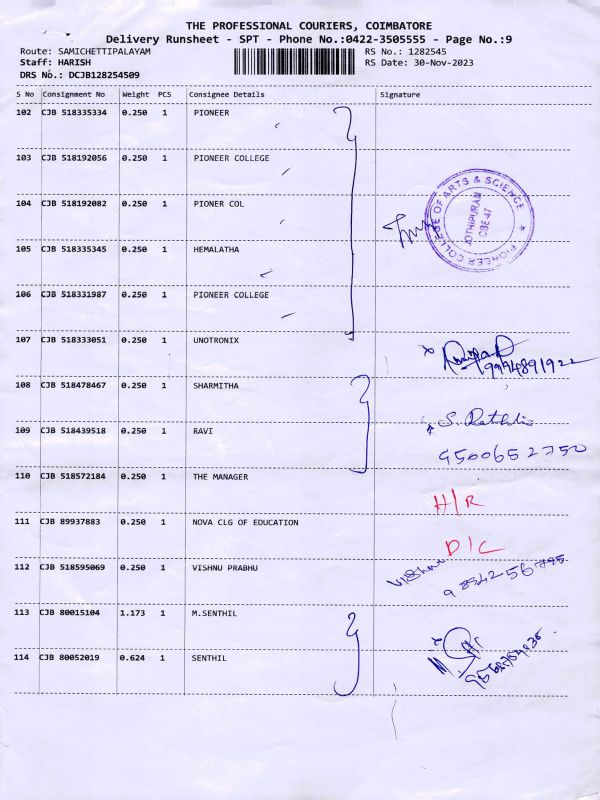 THE PROFESSIONAL COURIERS, COIMBATORE
Delivery Runsheet - SPT - Phone No.:0422-3505555 - Page No.:9
Route: SAMICHETTIPALAYAM RS No.: 1282545
Staff: HARISH RS Date: 30-Nov-2023
DRS No.: DCJB128254509
S No Consignment No Weight PCS Consignee Details Signature
102 CJB 518335334 0.250 1 PIONEER
103 CJB 518192056 0.250 1 PIONEER COLLEGE
104 CJB 518192082 0.250 1 PIONER COL
PIONEER COLLEGE OF ARTS & SCIENCE
JOTHIPURAM
CBE-47
105 CJB 518335345 0.250 1 HEMALATHA
106 CJB 518331987 0.250 1 PIONEER COLLEGE
107 CJB 518333051 0.250 1 UNOTRONIX
9994891922
108 CJB 518478467 0.250 1 SHARMITHA
109 CJB 518439518 0.250 1 RAVI
9500652750
110 CJB 518572184 0.250 1 THE MANAGER
H/R
111 CJB 89937883 0.250 1 NOVA CLG OF EDUCATION
D/C
112 CJB 518595069 0.250 1 VISHNU PRABHU
Vishnu
113 CJB 80015104 1.173 1 M.SENTHIL
114 CJB 80052019 0.624 1 SENTHIL